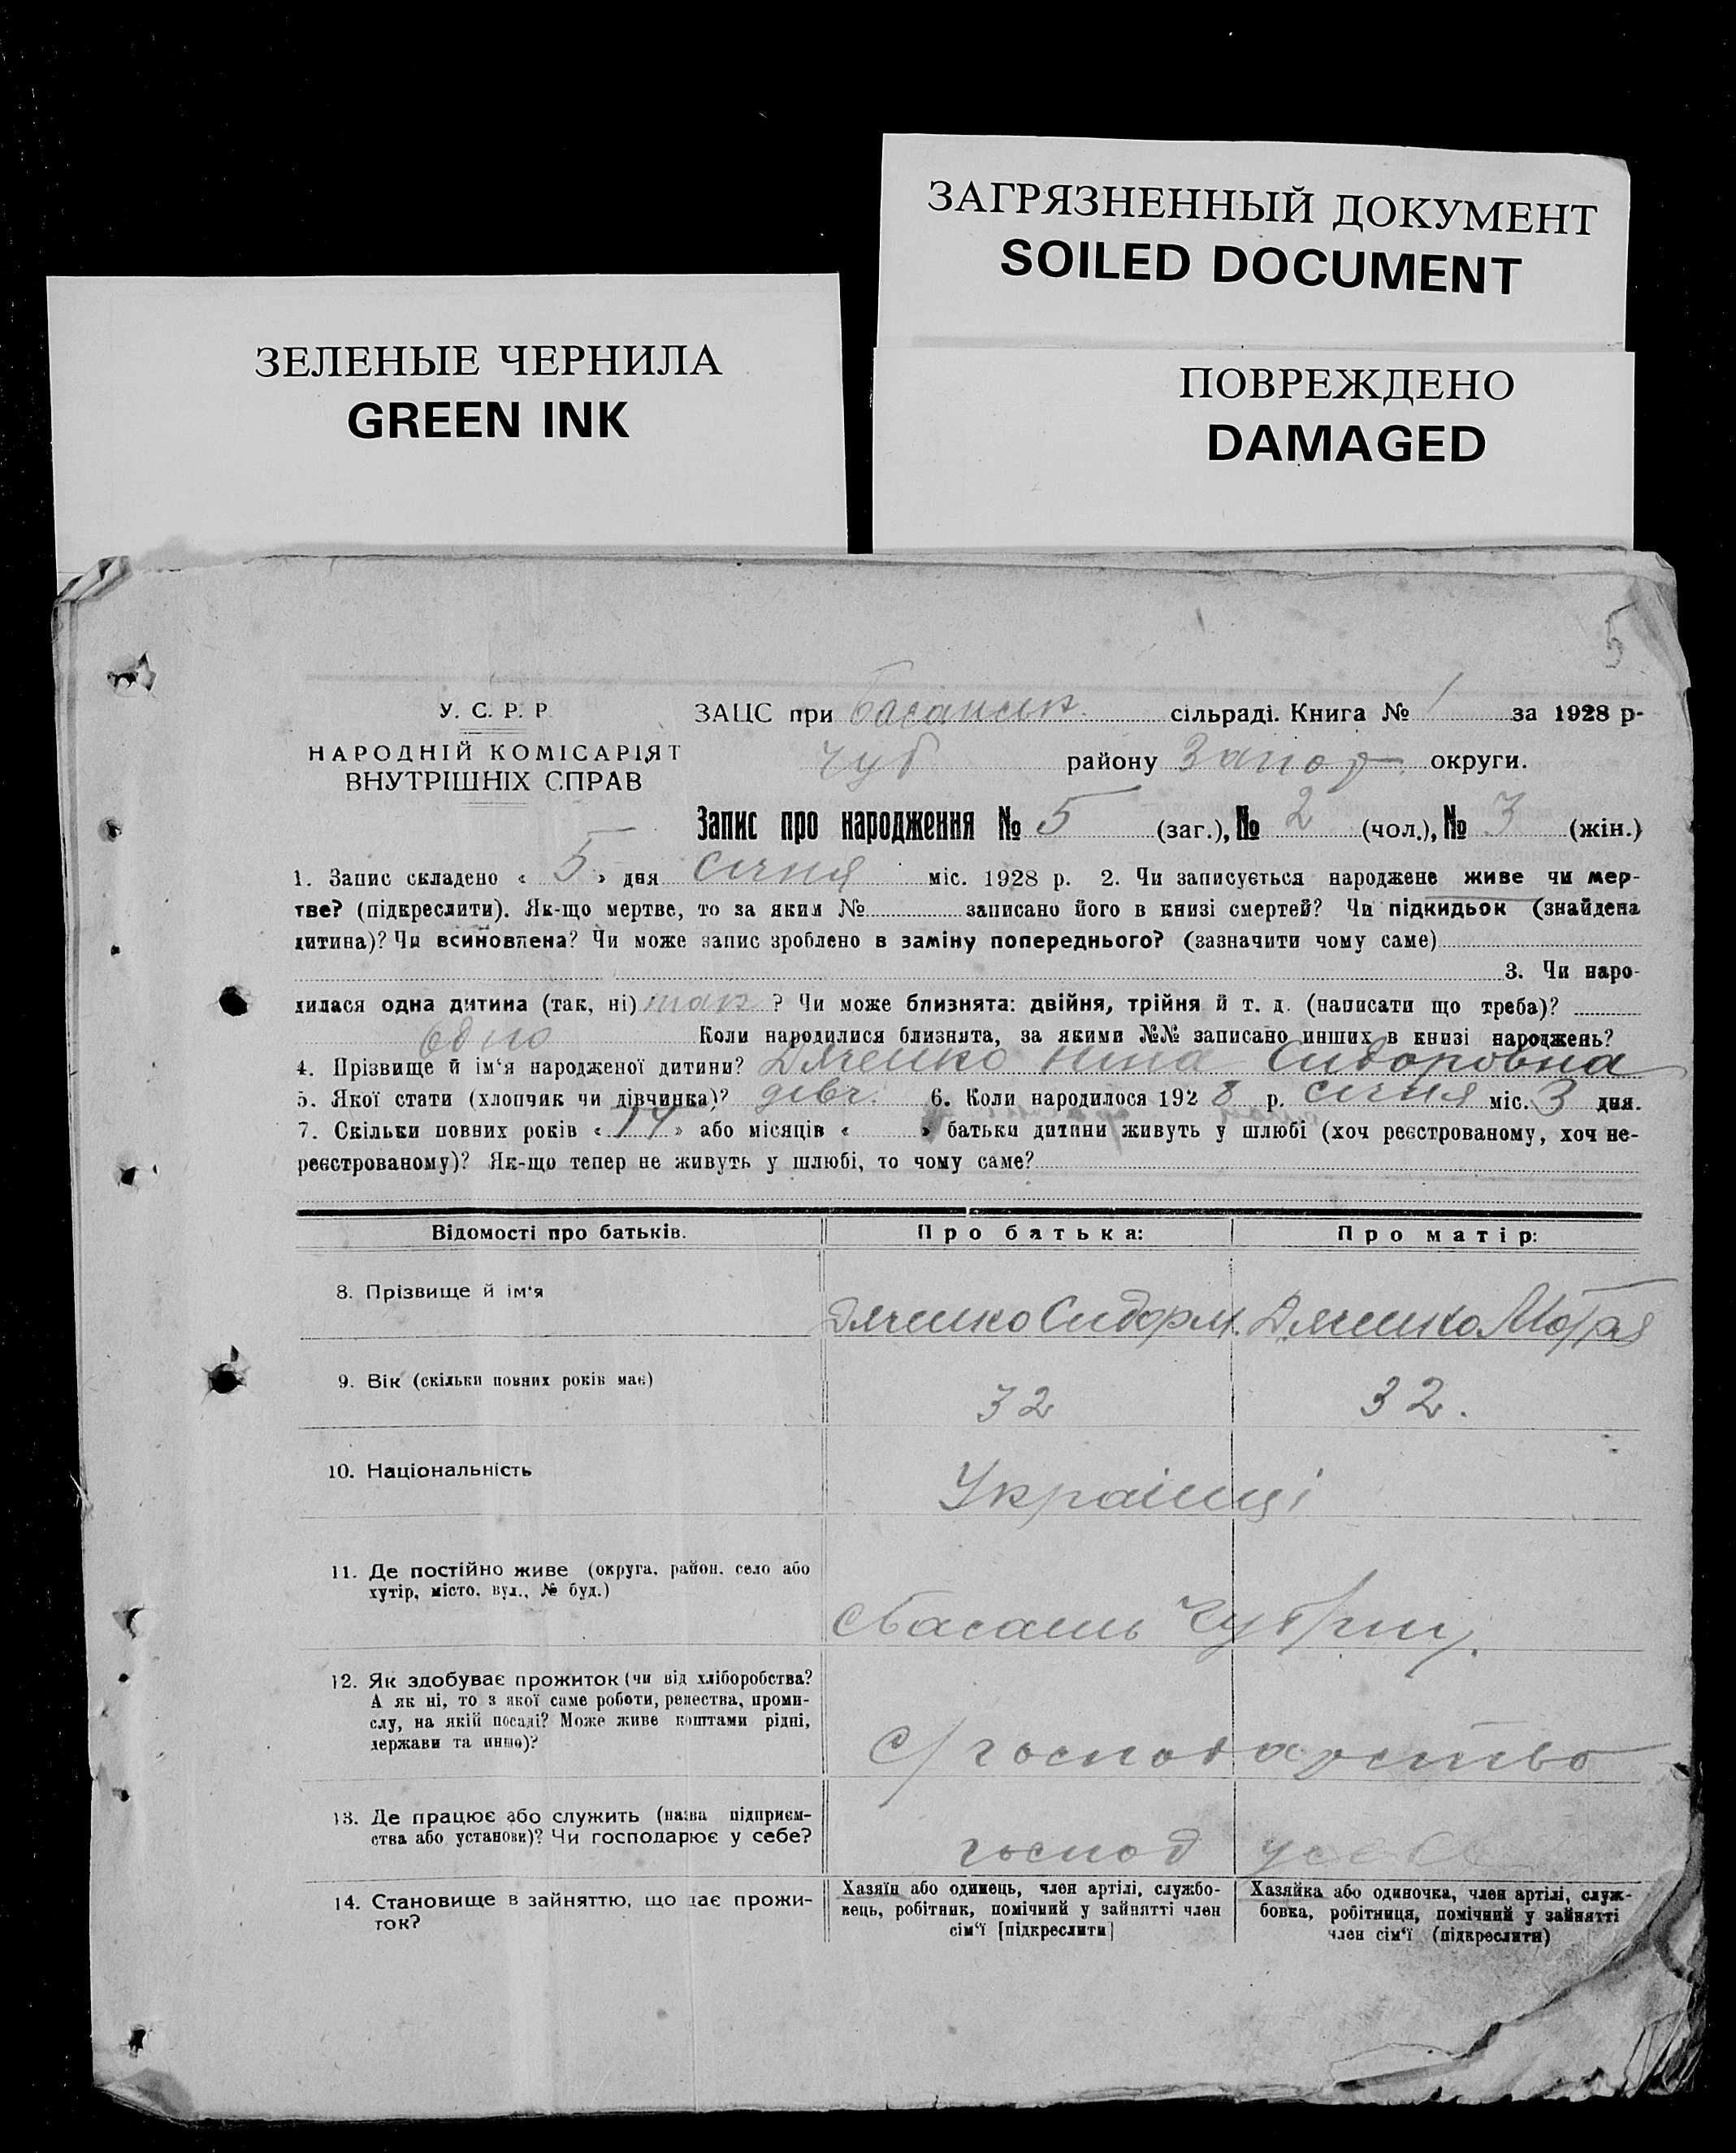 ЗАГРЯЗНЕННЫЙ ДОКУМЕНТ
SOILED DOCUMENT
ЗЕЛЕНЫЕ ЧЕРНИЛА
GREEN INK
ПОВРЕЖДЕНО
DAMAGED
5
У. С. Р. Р
НАРОДНІЙ КОМІСАРІЯТ
ВНУТРІШНІХ СПРАВ
ЗАЦС при Басанськ. сільраді. Книга № 1 за 1928 р-
Чуб району Запор. округи.
Запис про народження № 5 (заг.), № 2 (чол.), № 3 (жін.)
1. Запис складено « 5 » дня січня міс. 1928 р. 2. Чи записується народжене живе чи мер-
тве? (підкреслити). Як-що мертве, то за яким № записано його в книзі смертей? Чи підкидьок (знайдена
дитина)? Чи всиновлена? Чи може запис зроблено в заміну попереднього? (зазначити чому саме)
3. Чи наро-
дилася одна дитина (так, ні) так ? Чи може близнята: двійня, трійня й т. д. (написати що треба)?
одно Коли народилися близнята, за якими №№ записано инших в книзі народжень?
4. Прізвище й ім‘я народженої дитини? Дяченко Нина Сидоровна
5. Якої стати (хлопчик чи дівчинка)? дівч. 6. Коли народилося 1928 р. січня міс. 3 дня.
7. Скільки повних років « 14 » або місяців « » батьки дитини живуть у шлюбі (хоч реєстрованому, хоч не-
реєстрованому)? Як-що тепер не живуть у шлюбі, то чому саме?
Відомості про батьків. Про батька: Про матір:
8. Прізвище й ім‘я Дяченко Сидор М. Дяченко Мотря
9. Вік (скільки повних років має) 32 32.
10. Національність Українці
11. Де постійно живе (округа, район, село або
хутір, місто, вул., № буд.) с Басань Чуб
12. Як здобуває прожиток (чи від хліборобства?
А як ні, то з якої саме роботи, ремества, проми-
слу, на якій посаді? Може живе коштами рідні,
держави та инше)? с/господарство
13. Де працює або служить (назва підприєм-
ства або установи)? Чи господарює у себе? господ у себе
14. Становище в зайняттю, що дає прожи-
ток?
Хазяїн або одинець, член артілі, службо-
вець, робітник, помічний у зайнятті член
сім‘ї [підкреслити]
Хазяйка або одиночка, член артілі, служ-
бовка, робітниця, помічний у зайнятті
член сім‘ї (підкреслити)